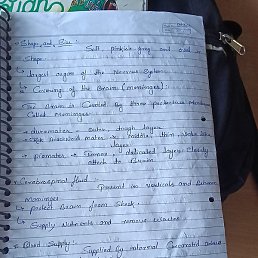 Shape and Size :
Soft, pinkish-grey and oval in
shape.
→ largest organ of the Nervous System.
Covering of the Brain (meninges) :
The Brain is Covered By three protective Membranes
Called Meninges :
• duramater → outer, tough layer
• mater → middle, thin,
layer
• piamater → Inner delicated layer Closely
attach to Brain.
• Cerebrospinal fluid :
Present in ventricals and Between
Meninges
→ protect Brain from Shock.
→ Supply Nutrients and remove wastes
• Blood Supply :
Supplied by internal Carotid